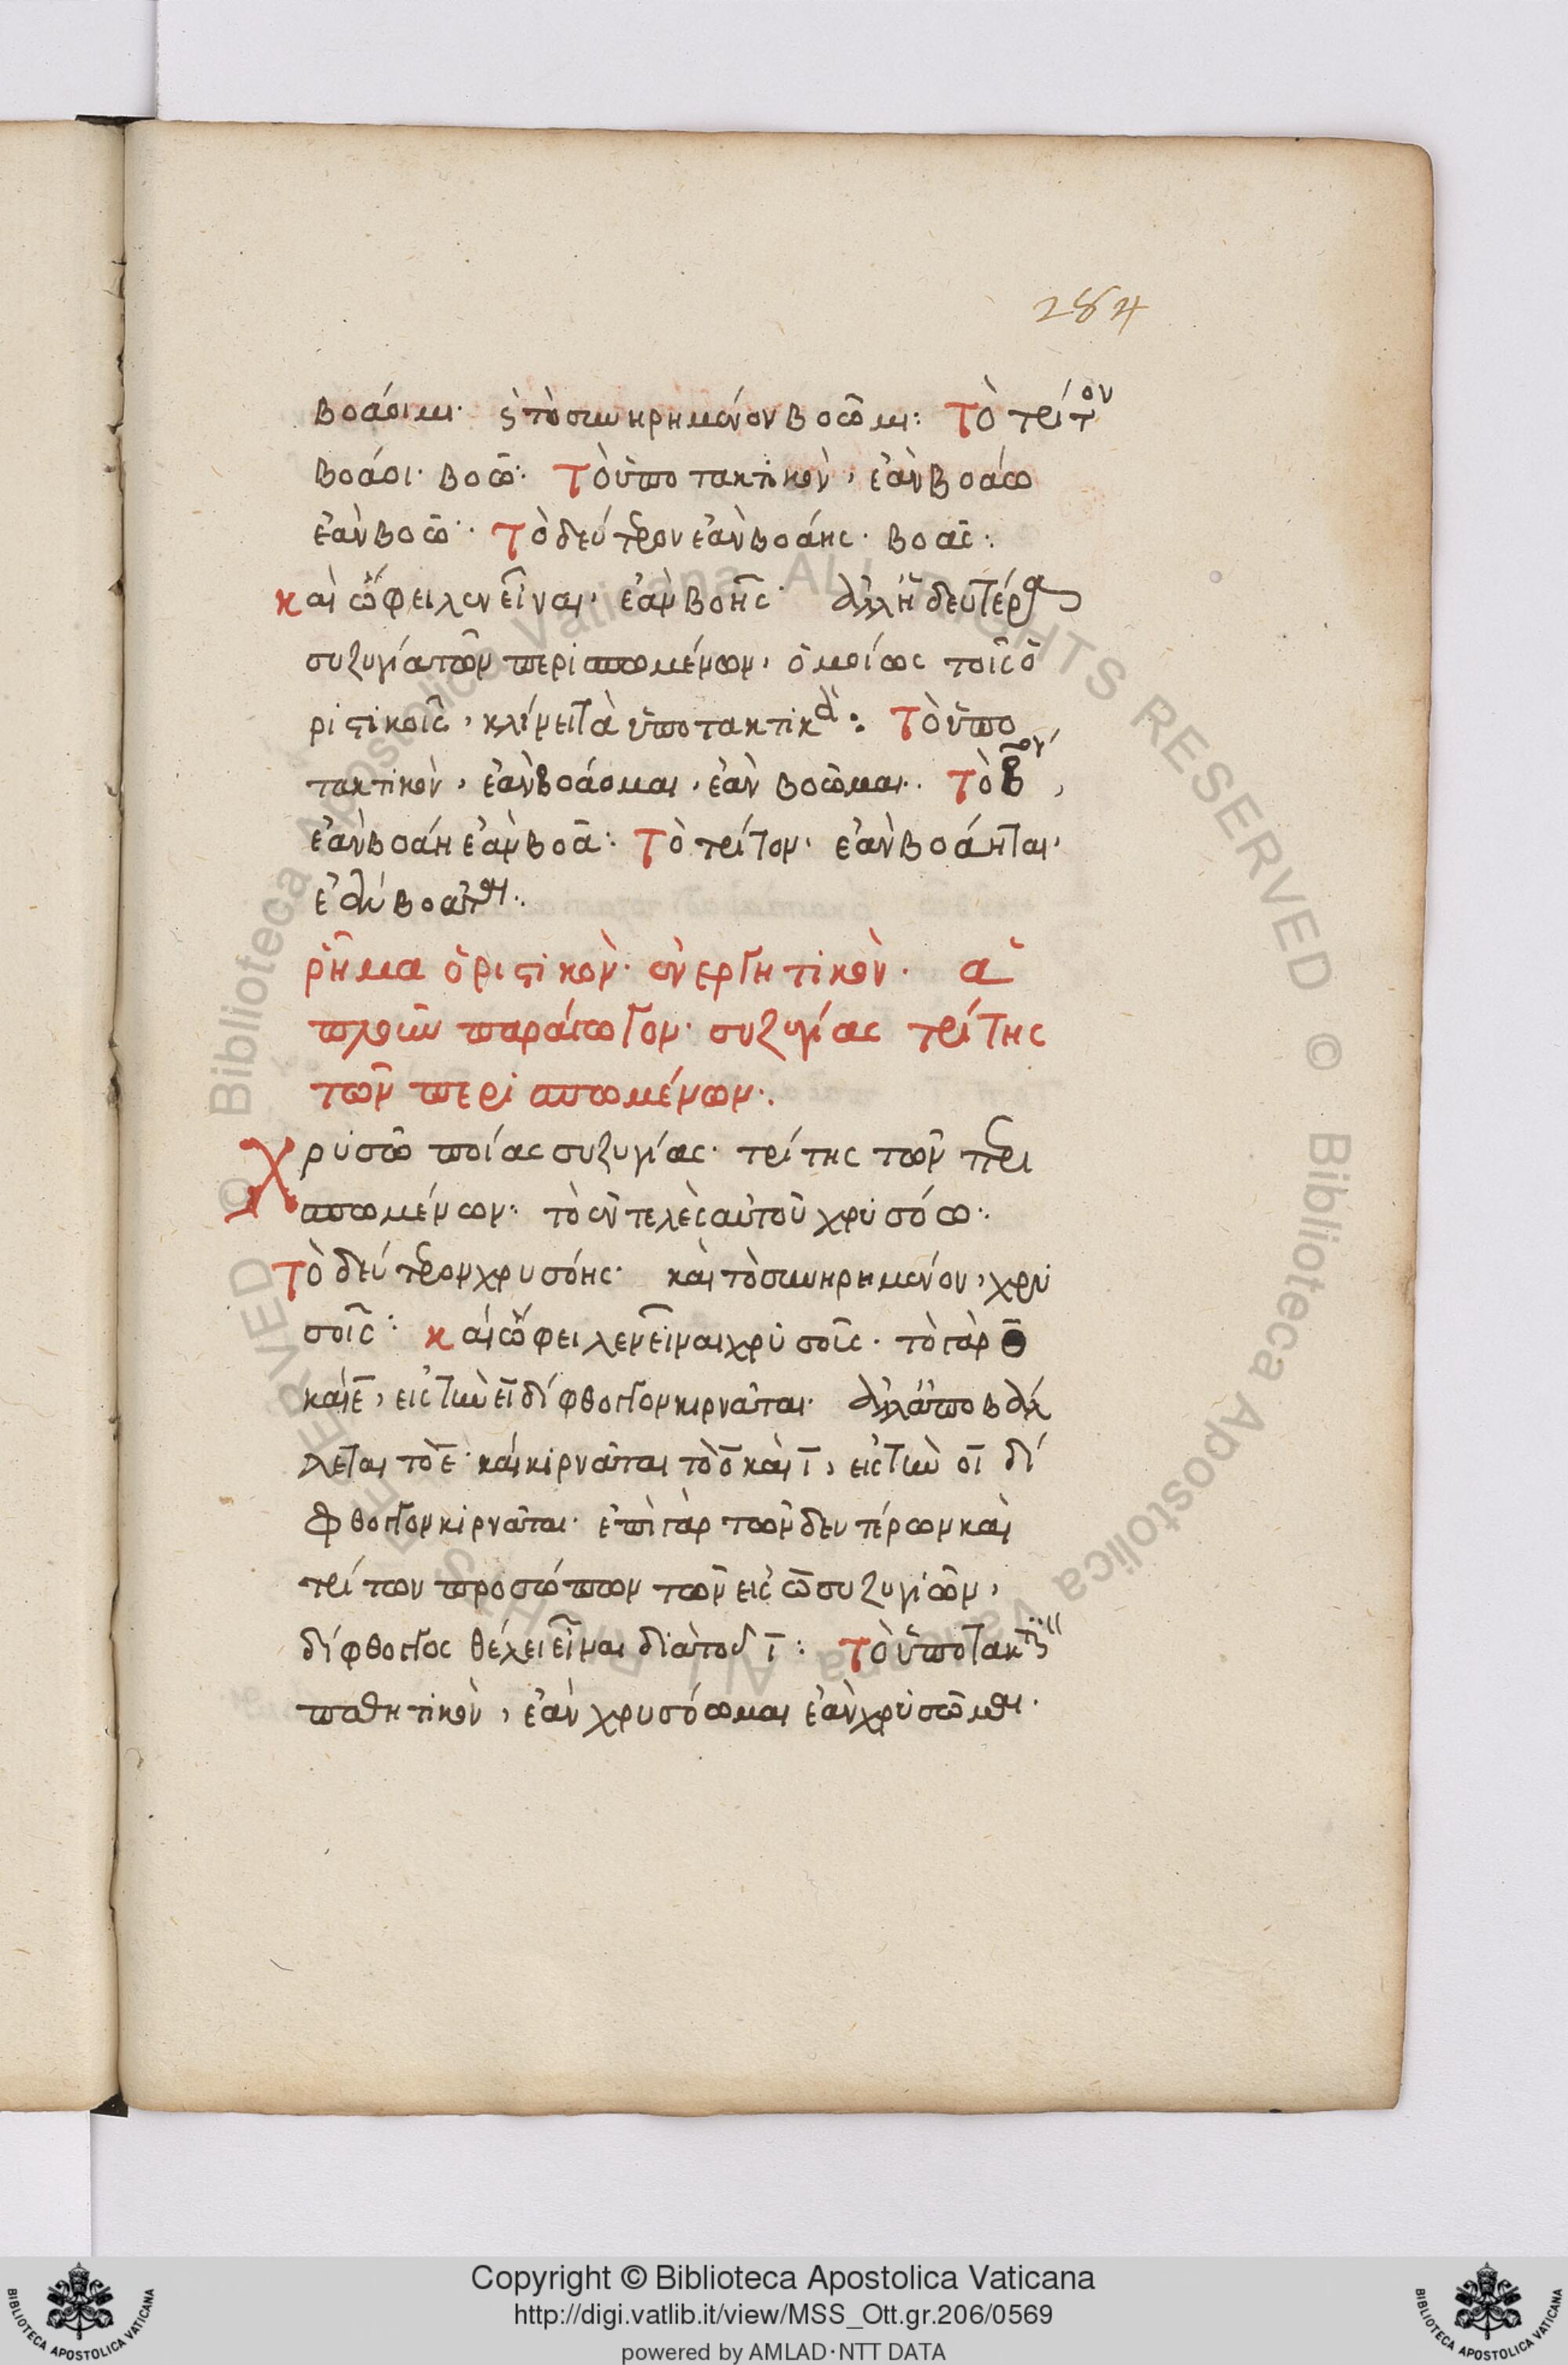 284
βοάοιμι· ϛ τὸ συνηρημένον βοῶμι: Τὸ τρίτον
βοάοι· βοῶ: Τὸ ὑποτακτικὸν, ἐὰν βοάω
ἐὰν βοῶ: Τὸ δεύτερον ἐὰν βοάης· βοᾶς:
καὶ ὤφειλεν εἶναι, ἐὰν βοῆς· ἀλλ' ἡ δευτέρα
συζυγία τῶν περισπωμένων, ὁμοίως τοῖς ὁ
ριστικοῖς, κλίνει τὰ ὑποτακτικά: Τὸ ὑπο
τακτικὸν, ἐὰν βοάομαι, ἐὰν βοῶμαι. Τὸ βον,
ἐὰν βοάη ἐὰν βοᾶ: Τὸ τρίτον, ἐὰν βοάηται,
ἐὰν βοᾶται:
ῥῆμα ὁριστικὸν· ἐνεργητικὸν. ἁ
πλοῦν παράγωγον· συζυγίας τρίτης
τῶν περισπωμένων:
Χρυσῶ ποίας συζυγίας· τρίτης τῶν περι
σπωμένων: τὸ ἐντελὲς αὐτοῦ χρυσόω:
Τὸ δεύτερον χρυσόης· καὶ τὸ συνηρημένον, χρυ
σοῖς: καὶ ὤφειλεν εἶναι χρυσοῖς. τὸ γὰρ ο
καὶ ε, εἰς τὴν ει δίφθογγον κιρνᾶται· ἀλλὰ ἀποβάλ
λεται τὸ ε· καὶ κιρνᾶται τὸ ο καὶ ι, εἰς τὴν οι δί
φθογγον κιρνᾶται· ἐπὶ γὰρ τῶν δευτέρων καὶ
τρίτων προσώπων τῶν εἰς ω συζυγιῶν,
δίφθογγος θέλει εἶναι διὰ τοῦ ι: Τὸ ὑποτακτι
παθητικὸν, ἐὰν χρυσόωμαι ἐὰν χρυσῶμαι.
Copyright © Biblioteca Apostolica Vaticana
http://digi.vatlib.it/view/MSS_Ott.gr.206/0569
powered by AMLAD·NTT DATA